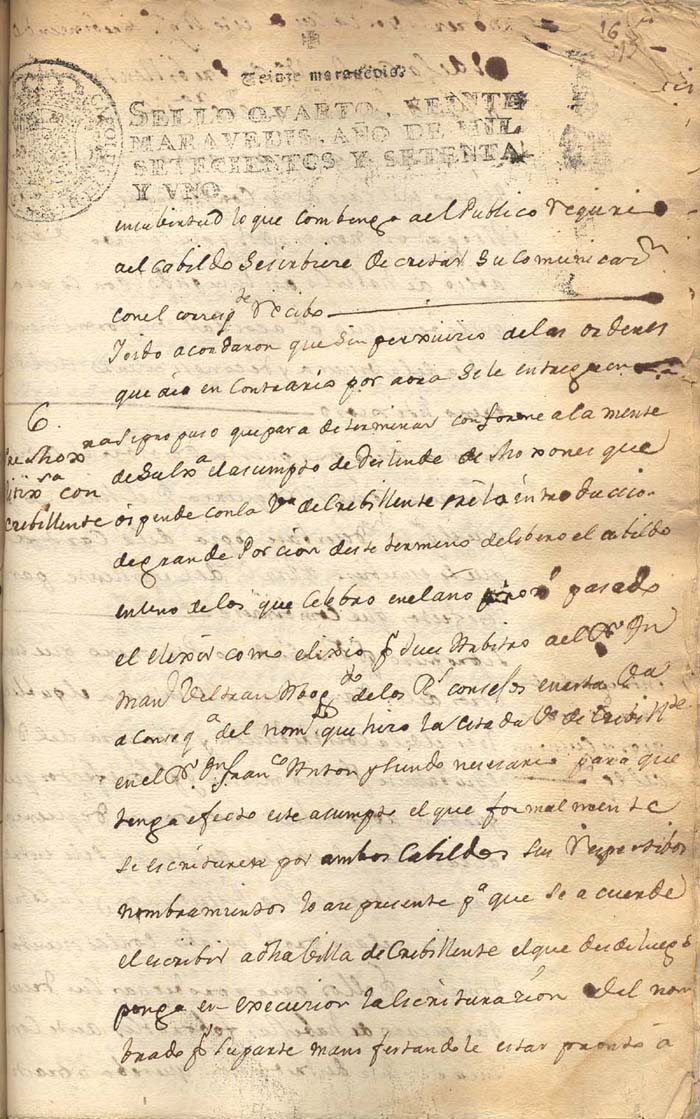 16
Veinte maravedis.
SELLO QVARTO, VEINTE
MARAVEDIS, AÑO DE MIL
SETECIENTOS Y SETENTA
Y VNO.
lo que combenga a el Publico
a el Cabildo se sirbiere decretar su
con el corresp.te recibo
acordaron que sin perxuicio de las ordenes
que aio en contrario por aora se le entreguen
6.
con
Crebillente
propuso que para determinar conforme a la mente
de su el asumpto de Deslinde de Moxones que
pende con la V.a de Crebillente la introduccion
de grande Porcion de este termino delibero el cabildo
en uno de los que celebro en el ano pasado
el elexir como elixio p.r Juez Arbitro a el D.r Dn
Man.l Veltran Abog.do de los R.s consejos en esta
a conseq.a del nom.to que hizo la citada V.a de Crebill.te
en el D.r Dn Fran.co Anton y siendo nesesario para que
tenga efecto este asumpto el que formalmente
se escrituren por ambos Cabildos sus respectibos
nombramientos lo ase presente p.a que se acuerde
el escribir a dha billa de Crebillente el que desde luego
ponga en execusion la escrituración del nom
brado p.r su parte manifestandole estar pronto á